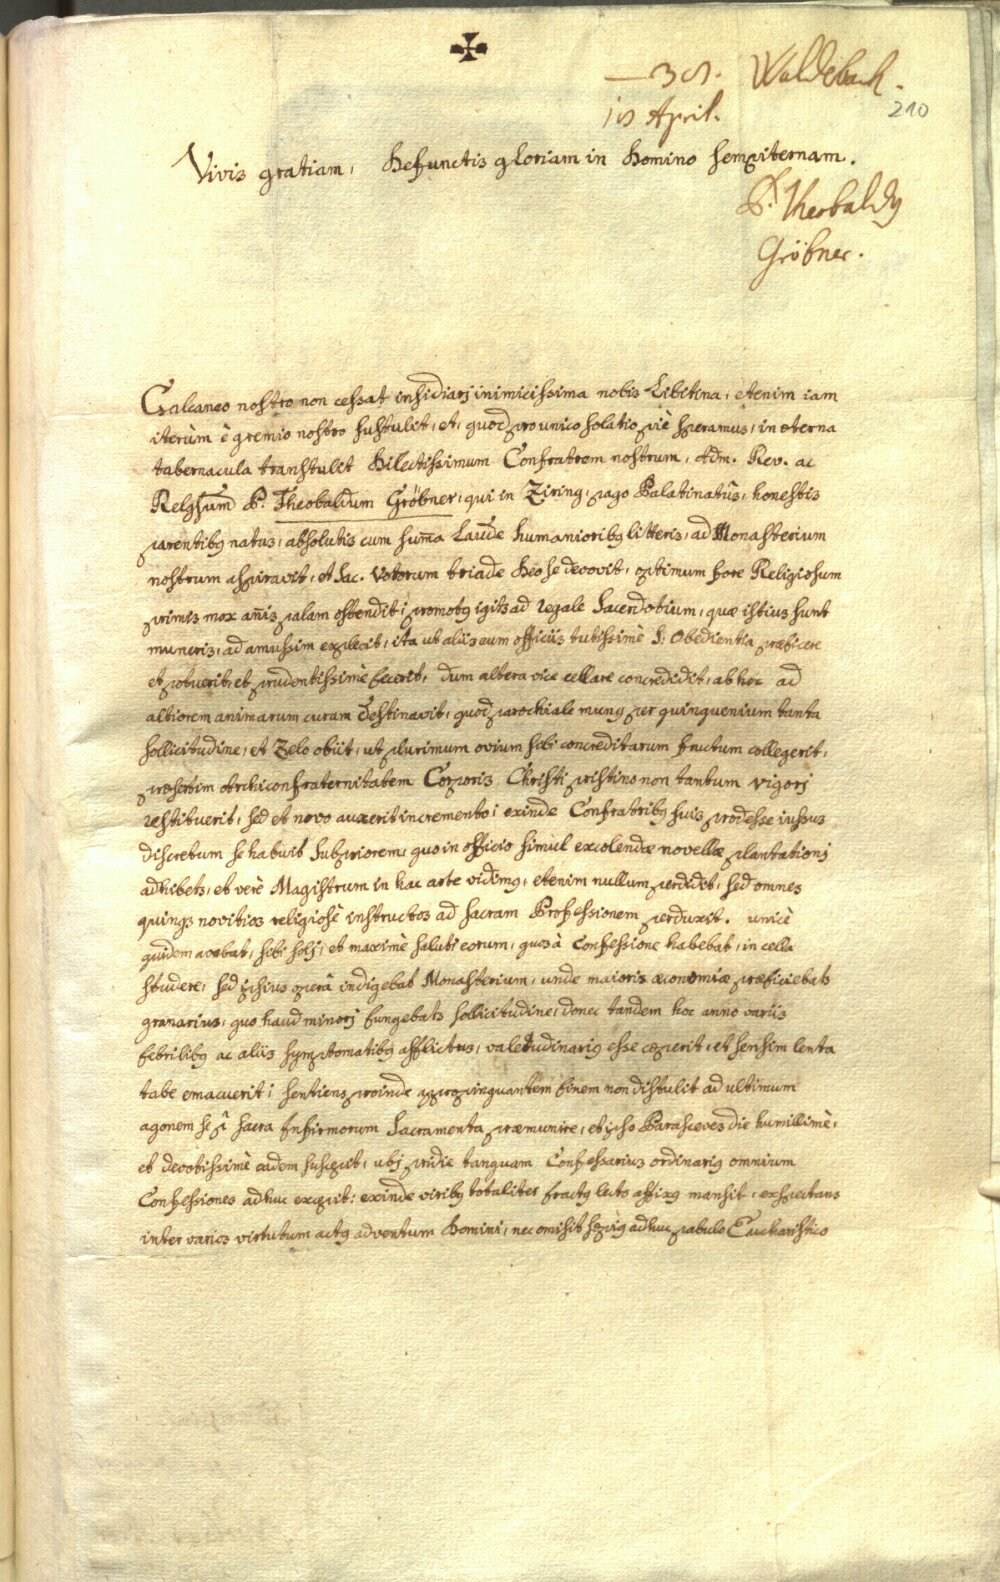 Waldebach.
210
April.
Vivis gratiam, Defunctis gloriam in Domino sempiternam.
P. Theobaldq
Gröbner.
Calcaneo nostro non cessat insidiari inimicissima nobis Libitina, etenim iam
iterùm è gremio nostro sustulit, et, quod pro unico solatio piè speramus, in æterna
tabernacula transtulit Dilectissimum Confratrem nostrum, Adm. Rev. ac
Relgsum P. Theobaldum Gröbner, qui in Ziring, pago Palatinatûs, honestis
parentibq natus, absolutis cum suma Laude humanioribq litteris, ad Monasterium
nostrum aspiravit, et sac. Votorum triade Deo se devovit, optimum fore Religiosum
primis mox anis palam ostendit; promotq igitr ad regale Sacerdotium, quæ istius sunt
muneris, ad amussim explevit, ita ut aliis eum officiis tutissimè S. Obedientia præficere
et potuerit, et prudentissimè fecerit, dum altera vice cellare concredidit, ab hoc ad
altiorem animarum curam destinavit, quod parochiale munq per quinquenium tanta
sollicitudine, et Zelo obiit, ut plurimum ovium sibi concreditarum fructum collegerit,
præsertim Archiconfraternitatem Corporis Christi pristino non tantum vigori
restituerit, sed et novo auxerit incremento; exinde Confratribq suis prodesse iussus
discretum se habuit Subpriorem, quo in officio simul excolendæ novellæ plantationi
adhibetr, et verè Magistrum in hac arte vidimq, etenim nullum perdidit, sed omnes
quinqz novitios religiosè instructos ad sacram Professionem perduxit. unicè
quidem avebat, sibi soli, et maximè saluti eorum, quos à Confessione habebat, in cella
studere, sed ipsius operâ indigebat Monasterium, unde maioris œconomiæ præficiebatr
granariis, quo haud minori fungebatr sollicitudine, donec tandem hoc anno variis
febrilibq ac aliis symptomatibq afflictus, valetudinariq esse cæperit, et sensim lenta
tabe emacuerit; sentiens proinde appropinquantem finem non distulit ad ultimum
agonem se p sacra Infirmorum Sacramenta præmunire, et ipso Parasceves die humillimè,
et devotissimè eadem suscepit, ubi pridie tanquam Confessarius ordinariq omnium
Confessiones adhuc excepit: exinde viribq totaliter fractq lecto affixq mansit, exspectans
inter varios virtutum actq adventum Domini, nec omisit sæpiq adhuc pabulo Eucharistico